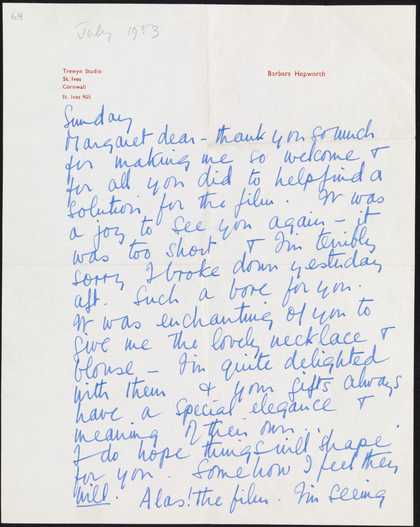 64
July 1953
Trewyn Studio
St. Ives
Cornwall
St. Ives
Barbara Hepworth
Sunday
Margaret dear – thank you so much
for making me so welcome, &
for all you did to help find a
solution for the film. It was
a joy to see you again – it
was too short & I'm terribly
sorry I broke down yesterday
aft. Such a bore for you.
It was enchanting of you to
give me the lovely necklace &
blouse – I'm quite delighted
with them & your gifts always
have a special elegance &
meaning of their own.
I do hope things will 'shape'
for you. Somehow I feel they
will. Alas! the film. I'm seeing